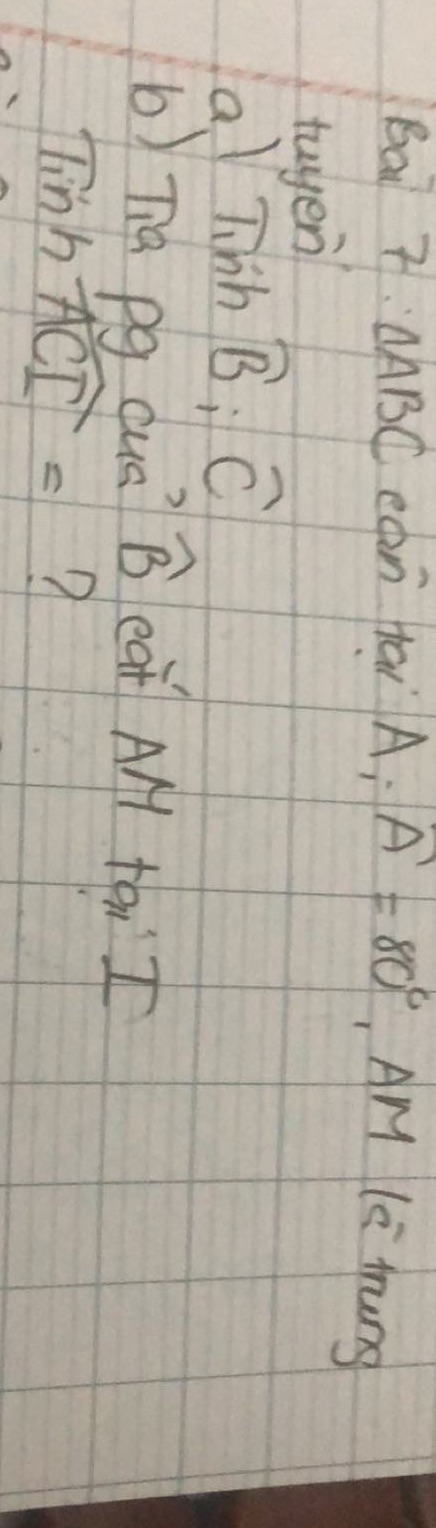 Bài 7: ΔABC cân tại A; Â = 80°, AM là trung
tuyến.
a) Tính B̂; Ĉ
b) Tia pg của B̂ cắt AM tại I
Tính ACI^ = ?